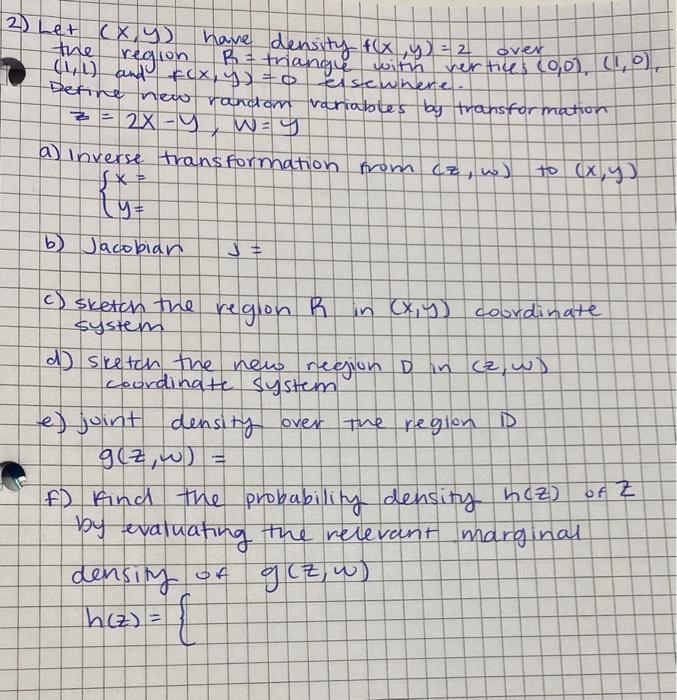 2) Let (X,Y) have density f(x,y) = 2 over
the region R = triangle with vertices (0,0), (1,0),
(1,1) and f(x,y) = 0 elsewhere.
Define new random variables by transformation
z = 2X - Y, W = y
a) Inverse transformation from (z, w) to (x,y)
{ x =
{ y =
b) Jacobian J =
c) sketch the region R in (X,Y) coordinate
system
d) sketch the new region D in (z,w)
coordinate system
e) joint density over the region D
g(z,w) =
f) Find the probability density h(z) of Z
by evaluating the relevant marginal
density of g(z,w)
h(z) = {